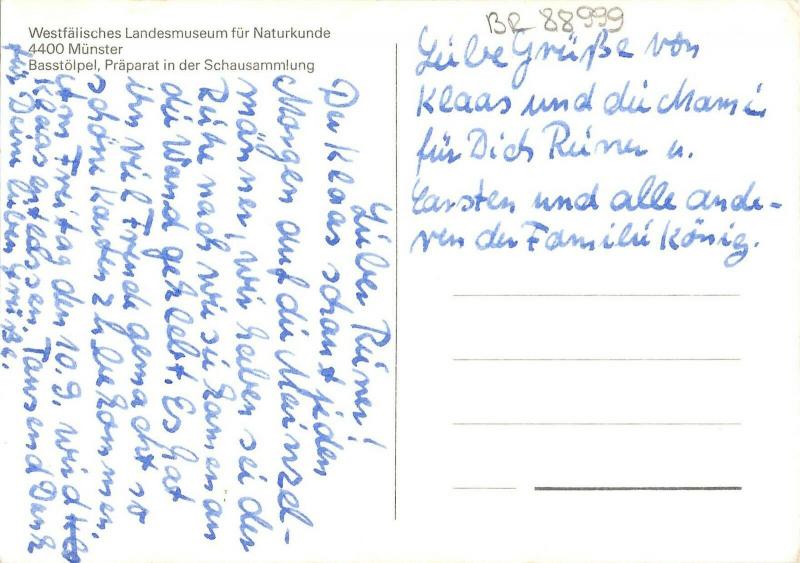 Westfälisches Landesmuseum für Naturkunde
4400 Münster
Basstölpel, Präparat in der Schausammlung
BR 88999
Lieber Reiner!
Der Klaas schaut jeden
Morgen auf die Mainzel-
männer, wir haben sie der
Reihe nach wie sie kamen an
die Wand geklebt. Es hat
ihm viel Freude gemacht so
schöne Karten zu bekommen.
Am Freitag den 10.9. wird
Klaas entlassen. Tausend Dank
für Deine lieben Grüße.
Liebe Grüße von
Klaas und die Mami
für Dich Reiner u.
Carsten und alle ande-
ren der Familie König.